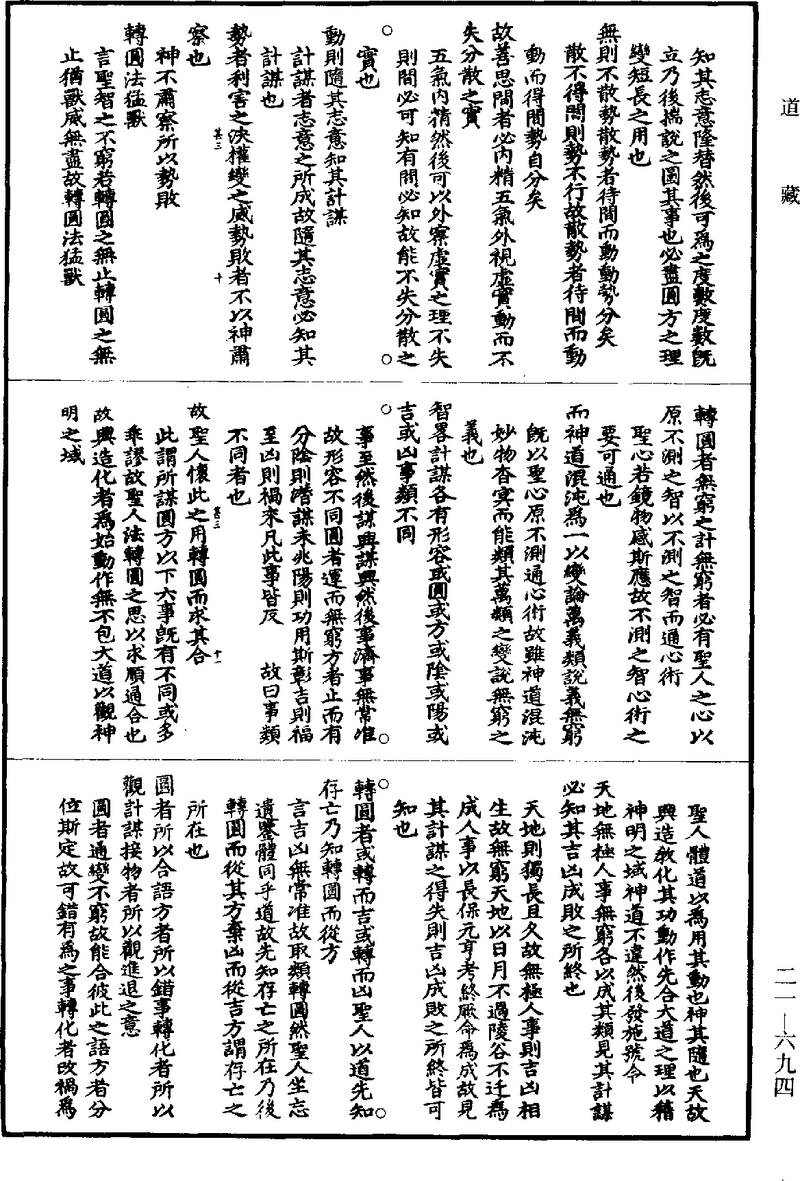 道藏
知其志意隆替然後可爲之度數度數旣
立乃後揣說之圖其事也必盡圓方之理
變短長之用也
無則不散勢散勢者待間而動動勢分矣
散不得間則勢不行故散勢者待間而動
動而得間勢自分矣
故善思間者必內精五氣外視虛實動而不
失分散之實
五氣內精然後可以外察虛實之理不失
則間必可知有間必知故能不失分散之
實也
動則隨其志意知其計謀
計謀者志意之所成故隨其志意必知其
計謀也
勢者利害之決權變之威勢敗者不以神肅
甚三
十
察也
神不肅察所以勢敗
轉圓法猛獸
言聖智之不窮若轉圓之無止轉圓之無
止猶獸威無盡故轉圓法猛獸
轉圓者無窮之計無窮者必有聖人之心以
原不測之智以不測之智而通心術
聖心若鏡物感斯應故不測之智心術之
要可通也
而神道混沌爲一以變論萬義類說義無窮
旣以聖心原不測通心術故雖神道混沌
妙物杳冥而能類其萬類之變說無窮之
義也
智畧計謀各有形容或圓或方或陰或陽或
吉或凶事類不同
事至然後謀興謀興然後事濟事無常准
故形容不同圓者運而無窮方者止而有
分陰則潛謀未兆陽則功用斯彰吉則福
至凶則禍來凡此事皆反 故曰事類
不同者也
甚三
十一
故聖人懷此之用轉圓而求其合
此謂所謀圓方以下六事旣有不同或多
乖謬故聖人法轉圓之思以求順通合也
故興造化者爲始動作無不包大道以觀神
明之域
聖人體道以爲用其動也神其隨也天故
興造教化其功動作先合大道之理以稽
神明之域神道不違然後發施號令
天地無極人事無窮各以成其類見其計謀
必知其吉凶成敗之所終也
天地則獨長且久故無極人事則吉凶相
生故無窮天地以日月不過陵谷不迁爲
成人事以長保元亨考終厥命爲成故見
其計謀之得失則吉凶成敗之所終皆可
知也
轉圓者或轉而吉或轉而凶聖人以道先知
存亡乃知轉圓而從方
言吉凶無常准故取類轉圓然聖人坐忘
遺鑒體同乎道故先知存亡之所在乃後
轉圓而從其方棄凶而從吉方謂存亡之
所在也
圓者所以合語方者所以錯事轉化者所以
觀計謀接物者所以觀進退之意
圓者通變不窮故能合彼此之語方者分
位斯定故可錯有爲之事轉化者改禍爲
二一—六九四